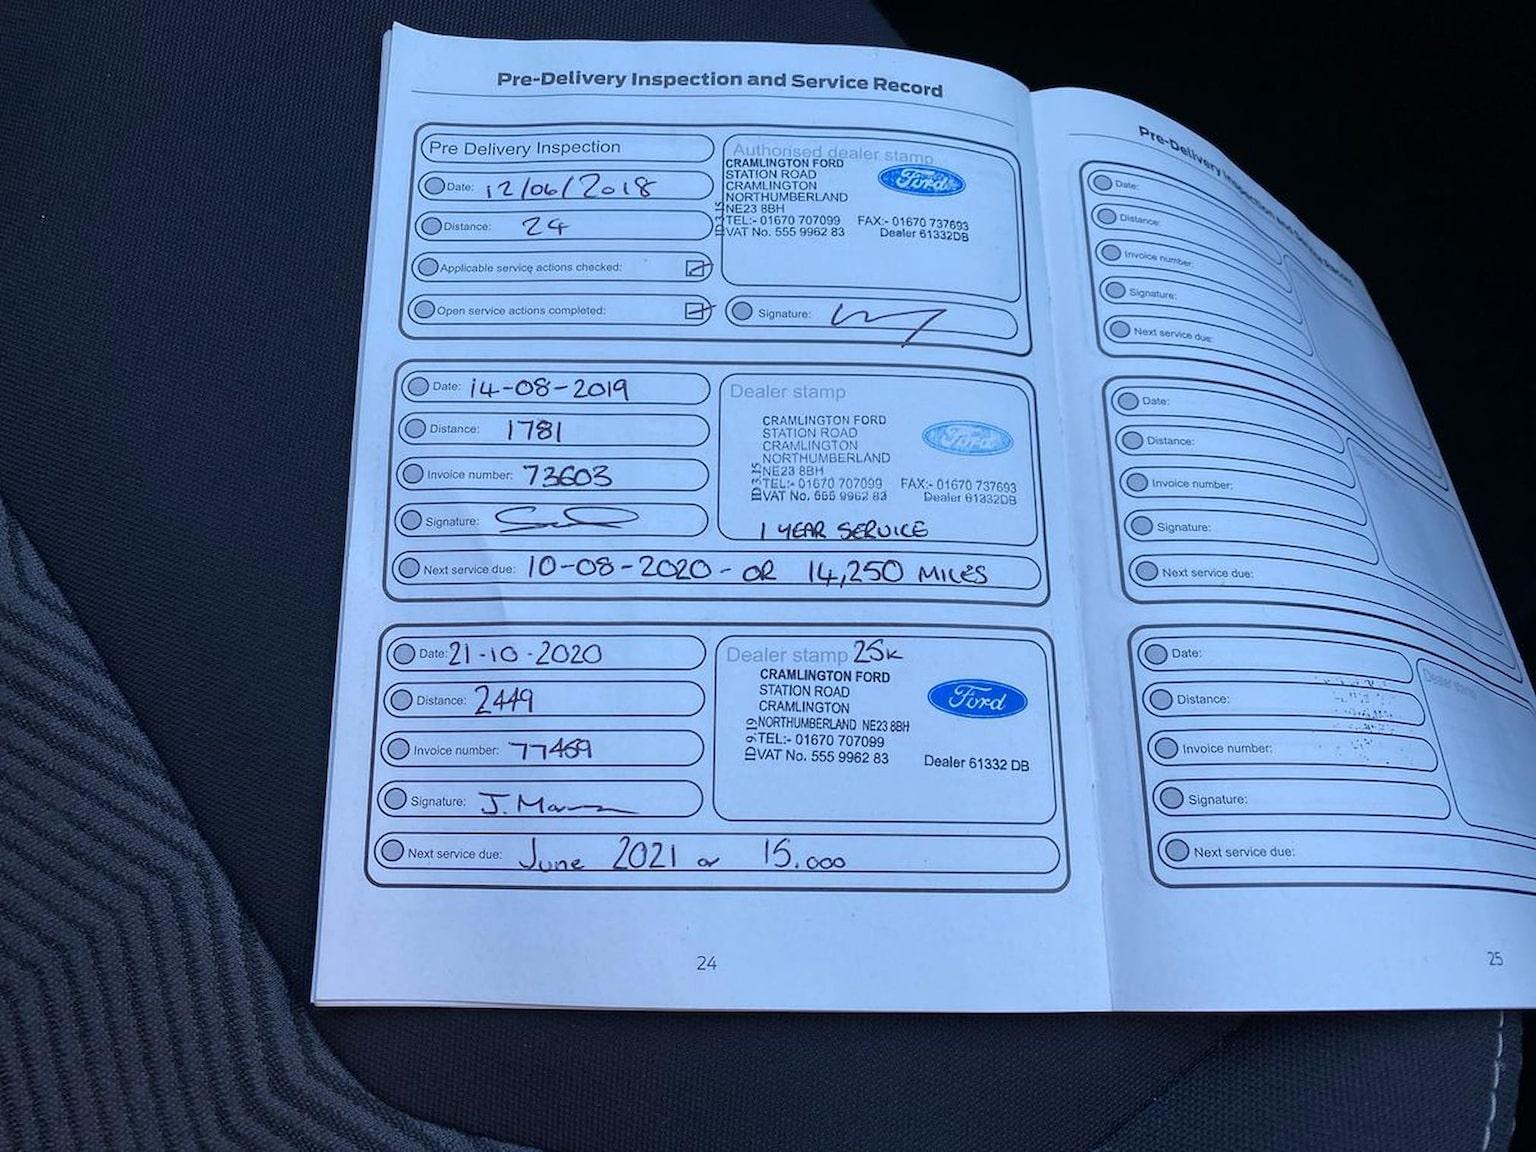 Pre-Delivery Inspection and Service Record
Pre Delivery Inspection
Date: 12/06/2018
Distance: 24
Applicable service actions checked:
Open service actions completed:
Authorised dealer stamp
CRAMLINGTON FORD
STATION ROAD
CRAMLINGTON
NORTHUMBERLAND
NE23 8BH
TEL:- 01670 707099 FAX:- 01670 737693
VAT No. 555 9962 83 Dealer 61332DB
ID 3.15
Ford
Signature:
Date: 14-08-2019
Distance: 1781
Invoice number: 73603
Signature:
Next service due: 10-08-2020 - OR 14,250 MILES
Dealer stamp
CRAMLINGTON FORD
STATION ROAD
CRAMLINGTON
NORTHUMBERLAND
NE23 8BH
TEL:- 01670 707099 FAX:- 01670 737693
VAT No. 555 9962 83 Dealer 61332DB
ID 3.15
Ford
1 YEAR SERVICE
Date: 21-10-2020
Distance: 2449
Invoice number: 77469
Signature: J.
Next service due: June 2021 or 15.000
Dealer stamp 25K
CRAMLINGTON FORD
STATION ROAD
CRAMLINGTON
NORTHUMBERLAND NE23 8BH
TEL:- 01670 707099
VAT No. 555 9962 83 Dealer 61332 DB
ID 9.19
Ford
24
Pre-Delivery Inspection and Service Record
Date:
Distance:
Invoice number:
Signature:
Next service due:
Date:
Distance:
Invoice number:
Signature:
Next service due:
Date:
Distance:
Invoice number:
Signature:
Next service due:
Dealer stamp
25